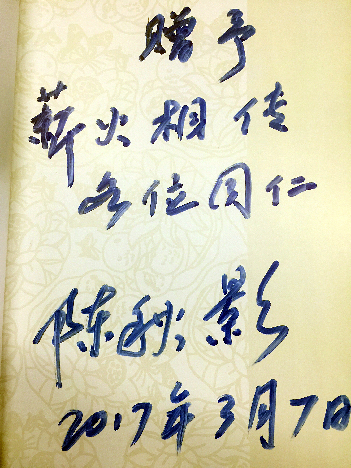 赠予
薪火相传
各位同仁
陈秋影
2017年3月7日